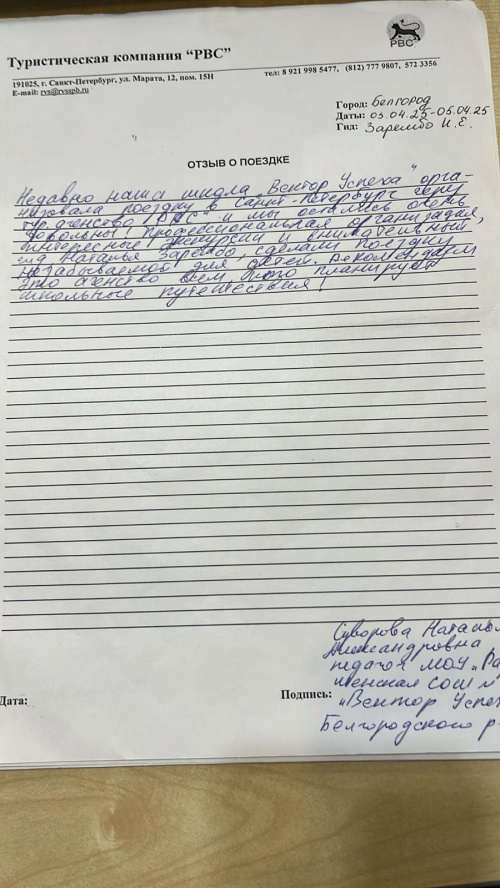 Туристическая компания “РВС”
РВС
191025, г. Санкт-Петербург, ул. Марата, 12, пом. 15Н
тел: 8 921 998 5477, (812) 777 9807, 572 3356
E-mail: rvs@rvsspb.ru
Город: Белгород
Даты: 03.04.25-05.04.25
Гид: Зарембо Н.Е.
ОТЗЫВ О ПОЕЗДКЕ
Недавно наша школа „Вектор Успеха" орга-
низовала поездку в Санкт-Петербург через
тур. агенство „РВС" и мы остались очень
довольны! Профессиональная организация,
интересные экскурсии и внимательный
гид Наталья Зарембо, сделали поездку
незабываемой для детей. Рекомендуем
это агенство всем, кто планирует
школьные путешествия!
Суворова Наталь
Александровна
педагог МОУ „Ра
менская СОШ
„Вектор Успех
Белгородского р-
Дата:
Подпись: